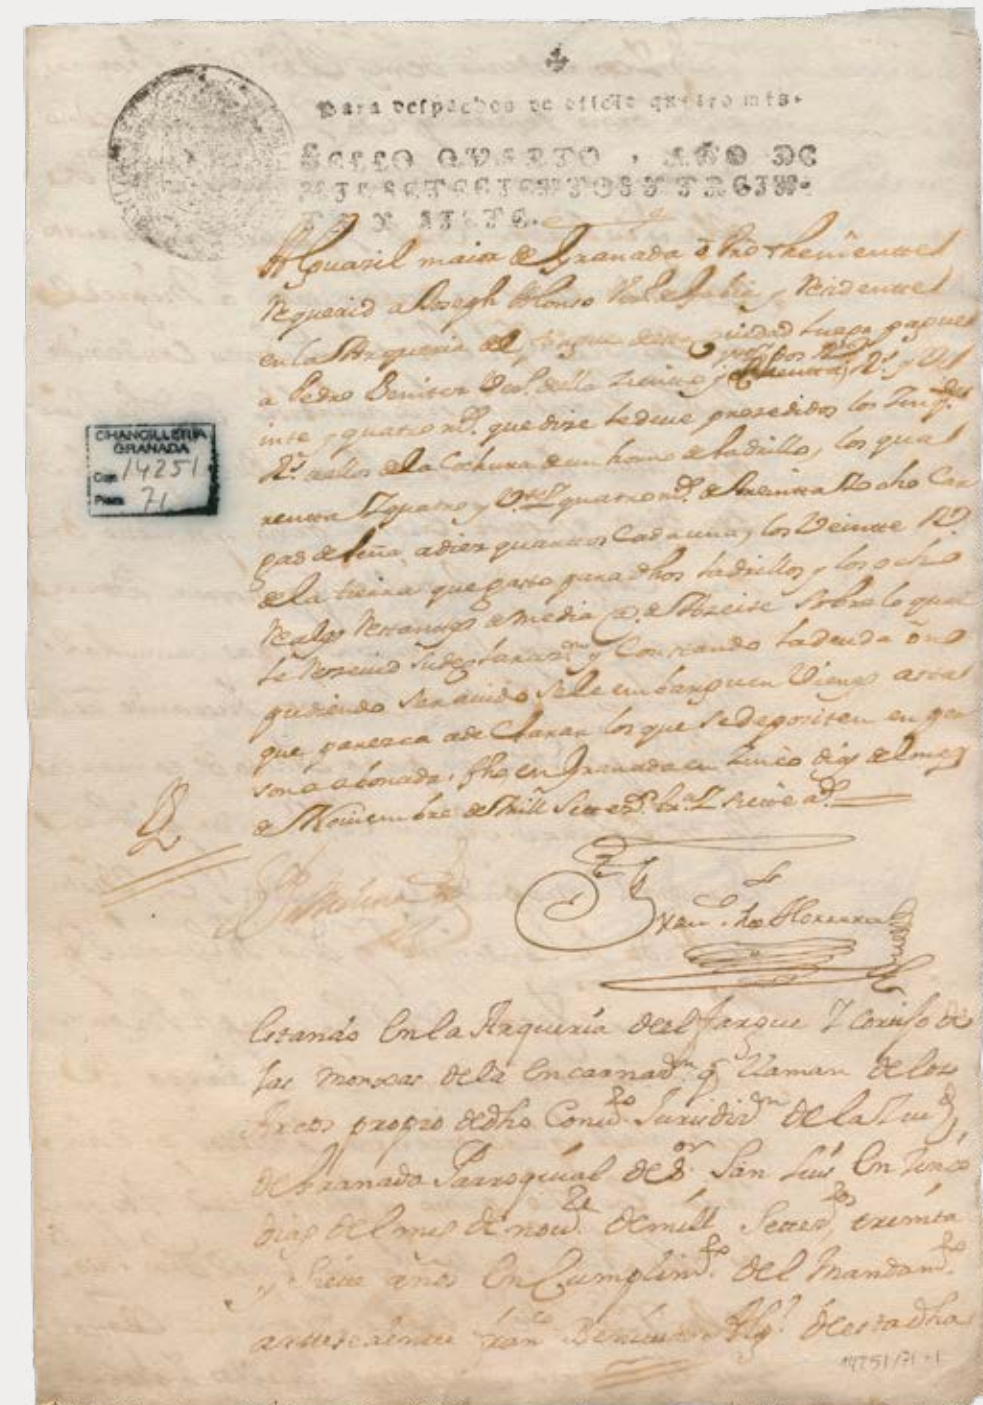 Para despachos de oficio quatro mrs.
SELLO QVARTO, AÑO DE
MIL SETECIENTOS Y TREIN-
TA Y SIETE.
Alguazil maior de Granada o Vro theniente
Requerid a Joseph Alonso Vezº y Residente
en la Alqueria del fargue desta luego pague
a Pedro Benitez Vezº della y Rs. y Ve
inte y quatro ms. que dize le deve prozedidos los
Rs. dellos de la Cochura de un horno de ladrillo, los qua
renta y quatro y Vte y quatro ms. de treinta y ocho Car
gas de leña, a diez quartos Cada una, y los Veinte Rs.
de la tierra que gasto para dhos ladrillos y los ocho
Reales Restantes de media @. de Azeite sobre lo qual
le Reseivid y Constando la deuda o no
pudiendo ser avido se le embarguen Vienes
que paresca los que se depositen en per
sona abonada, fho en Granada en zinco dias del mes
de Noviembre de Mill Settezs. tra. y siete as.
CHANCILLERIA
GRANADA
Caja 14251
Pieza 71
Estando En la Arqueria del fargue y cortijo de
las monxas de la encarnazn. q llaman de los
Arcos propio de dho Convto. Jurisdizn. de la Ziud
de Granada Parroquial de Sor. San Luis En zinco
dias del mes de novre. de mill Settezos. treinta
y Siete años En Cumplimto. del Mandamto.
antezedente franco. Benitez Algl. desta dha
14251/71-1